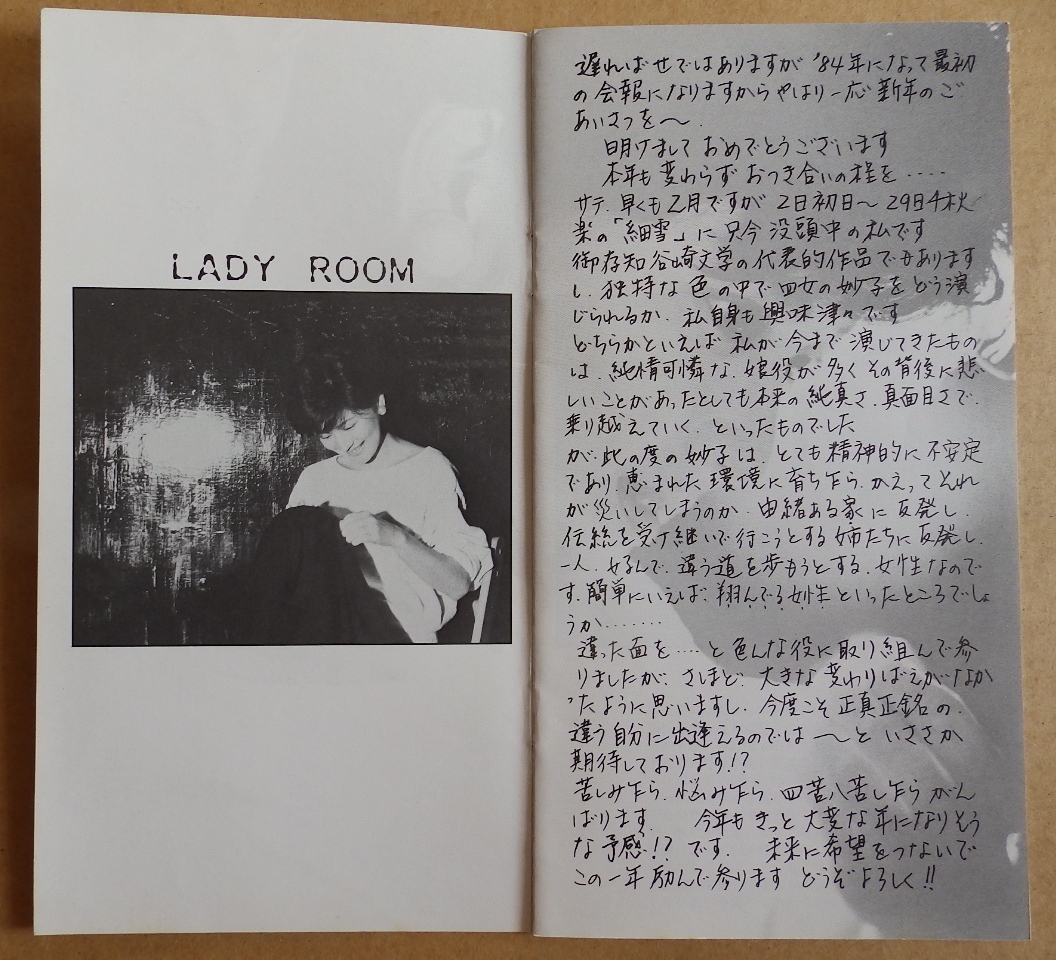 LADY ROOM
遅ればせではありますが '84年になって最初
の会報になりますからやはり一応新年のご
あいさつを〜.
明けまして おめでとうございます
本年も変わらず おつき合いの程を ‥‥
サテ、早くも2月ですが 2日初日〜29日千秋
楽の「細雪」に只今没頭中の私です
御存知谷崎文学の代表的作品でもあります
し、独特な色の中で四女の妙子をどう演
じられるか、私自身も興味津々です
どちらかといえば 私が今まで演じてきたもの
は、純情可憐な、娘役が多く その背後に悲
しいことがあったとしても本来の純真さ、真面目さで、
乗り越えていく、といったものでした
が、此の度の妙子は、とても精神的に不安定
であり、恵まれた環境に育ち乍ら、かえってそれ
が災いしてしまうのか、由緒ある家に反発し、
伝統を受け継いで行こうとする姉たちに反発し、
一人、好んで、違う道を歩もうとする、女性なので
す、簡単にいえば、翔んでる女性といったところでしょ
うか.......
違った面を‥‥と色んな役に取り組んで参
りましたが、さしほど、大きな変わりばえがなか
ったように思いますし、今度こそ正真正銘の、
違う自分に出逢えるのでは〜と いささか
期待しております!?
苦しみ乍ら、悩み乍ら、四苦八苦し乍ら がん
ばります 今年も きっと 大変な年になりそう
な予感!? です、 未来に希望をつないで
この一年励んで参ります どうぞよろしく!!